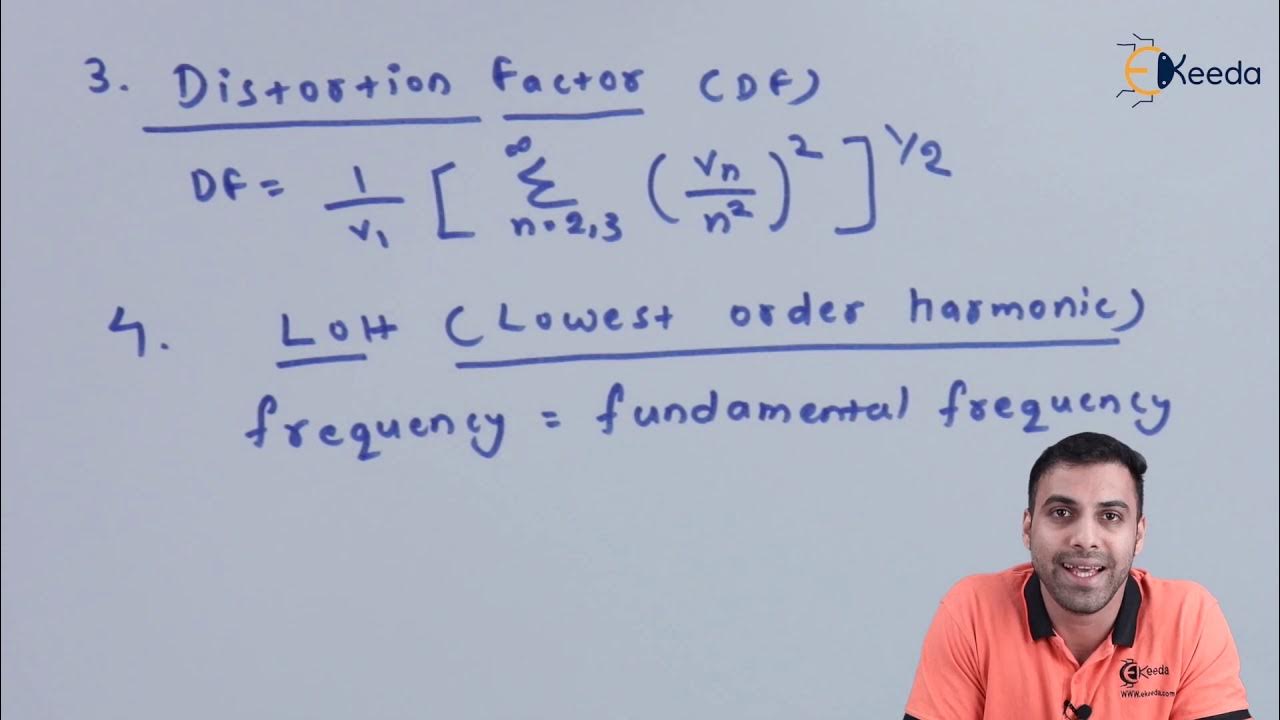 EKeeda
3. Distortion Factor (DF)
DF = 1/V₁ [ ∞Σn=2,3 (Vn/n²)² ]^1/2
4. LOH (Lowest order harmonic)
frequency = fundamental frequency
EKeeda
www.ekeeda.com